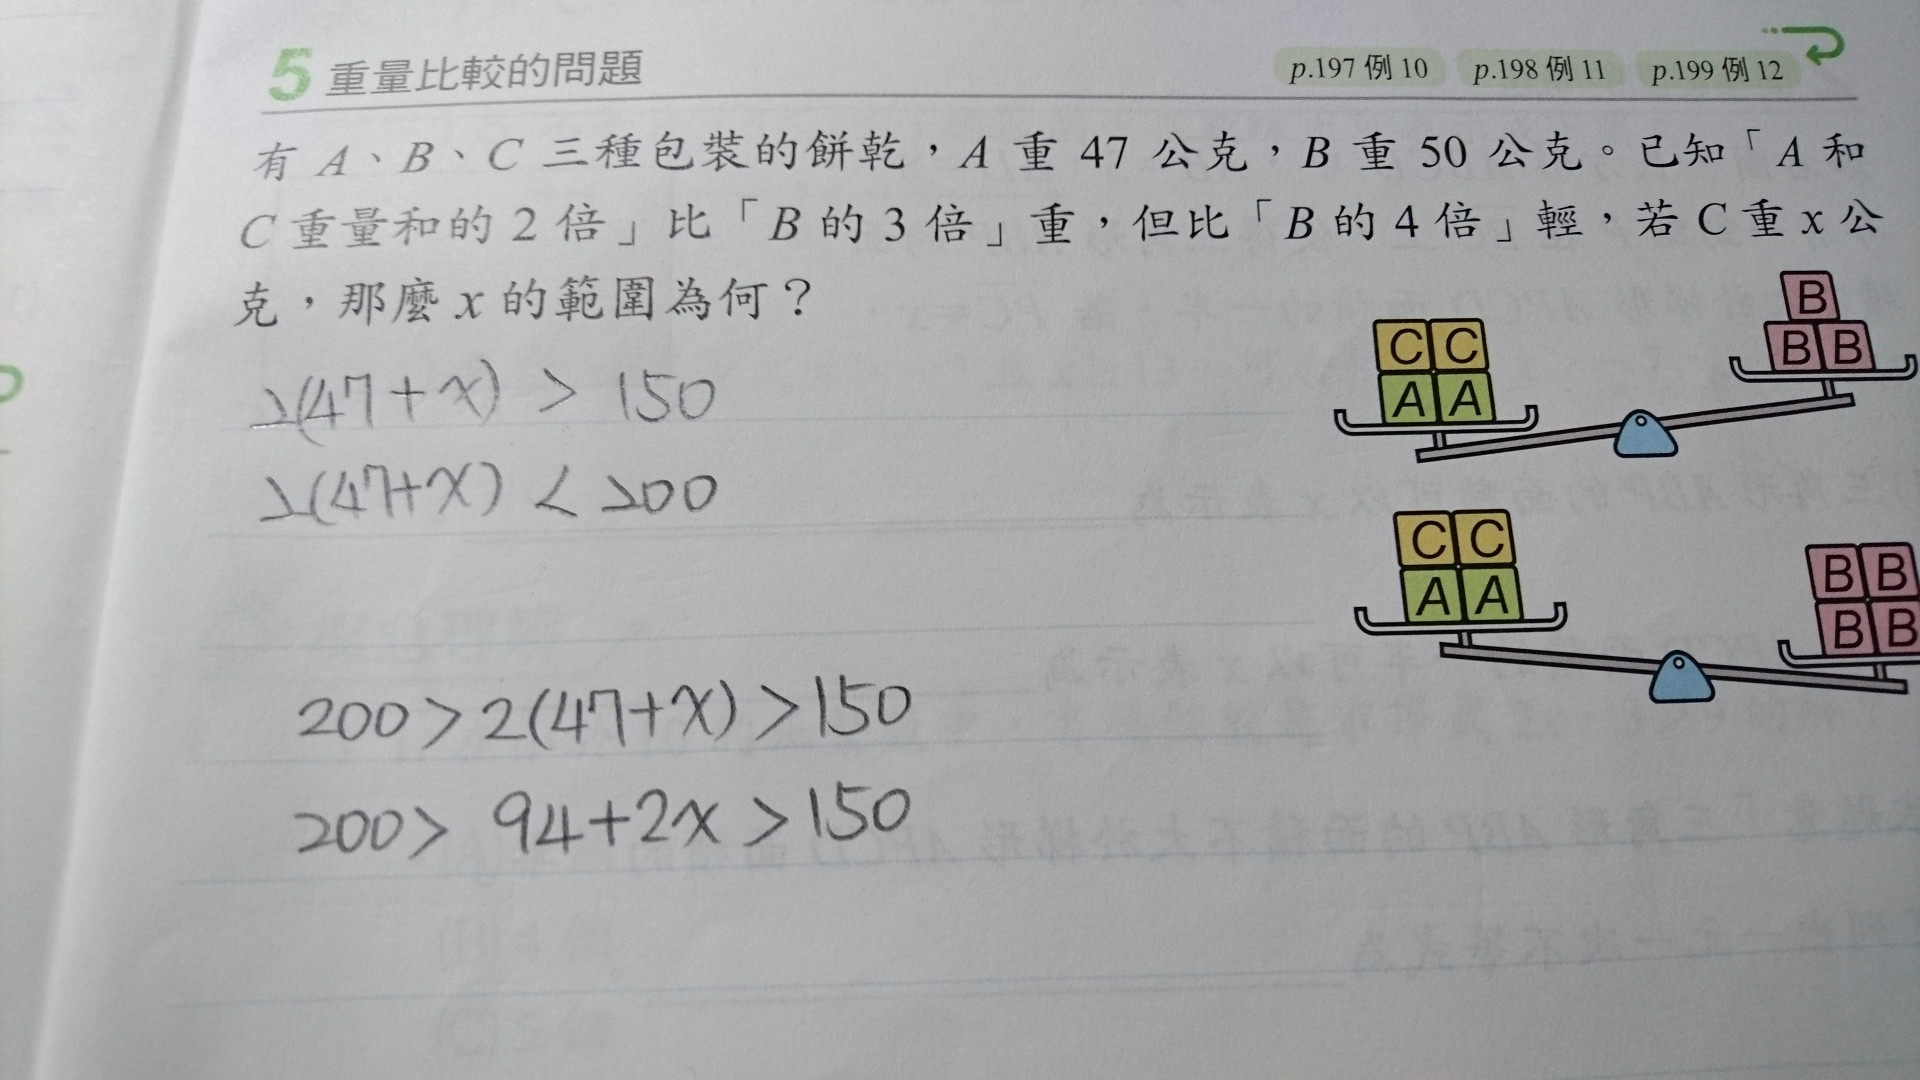 5 重量比較的問題
p.197 例 10 p.198 例 11 p.199 例 12
有 A、B、C 三種包裝的餅乾，A 重 47 公克，B 重 50 公克。已知「A 和
C 重量和的 2 倍」比「B 的 3 倍」重，但比「B 的 4 倍」輕，若 C 重 x 公
克，那麼 x 的範圍為何？
2(47+x) > 150
2(47+x) < 200
200>2(47+x)>150
200> 94+2x >150
B
C C
B B
A A
C C
B B
A A
B B